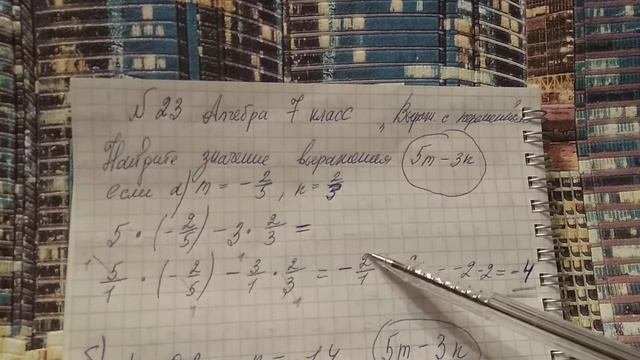 № 23 Алгебра 7 класс,
Найдите значение выражения 5m - 3n
если а) m = -2/5, n = 2/3
5 · (-2/5) - 3 · 2/3 =
5/1 · (-2/5) - 3/1 · 2/3 = -2/1 -2-2 = -4
б) 5m - 3n